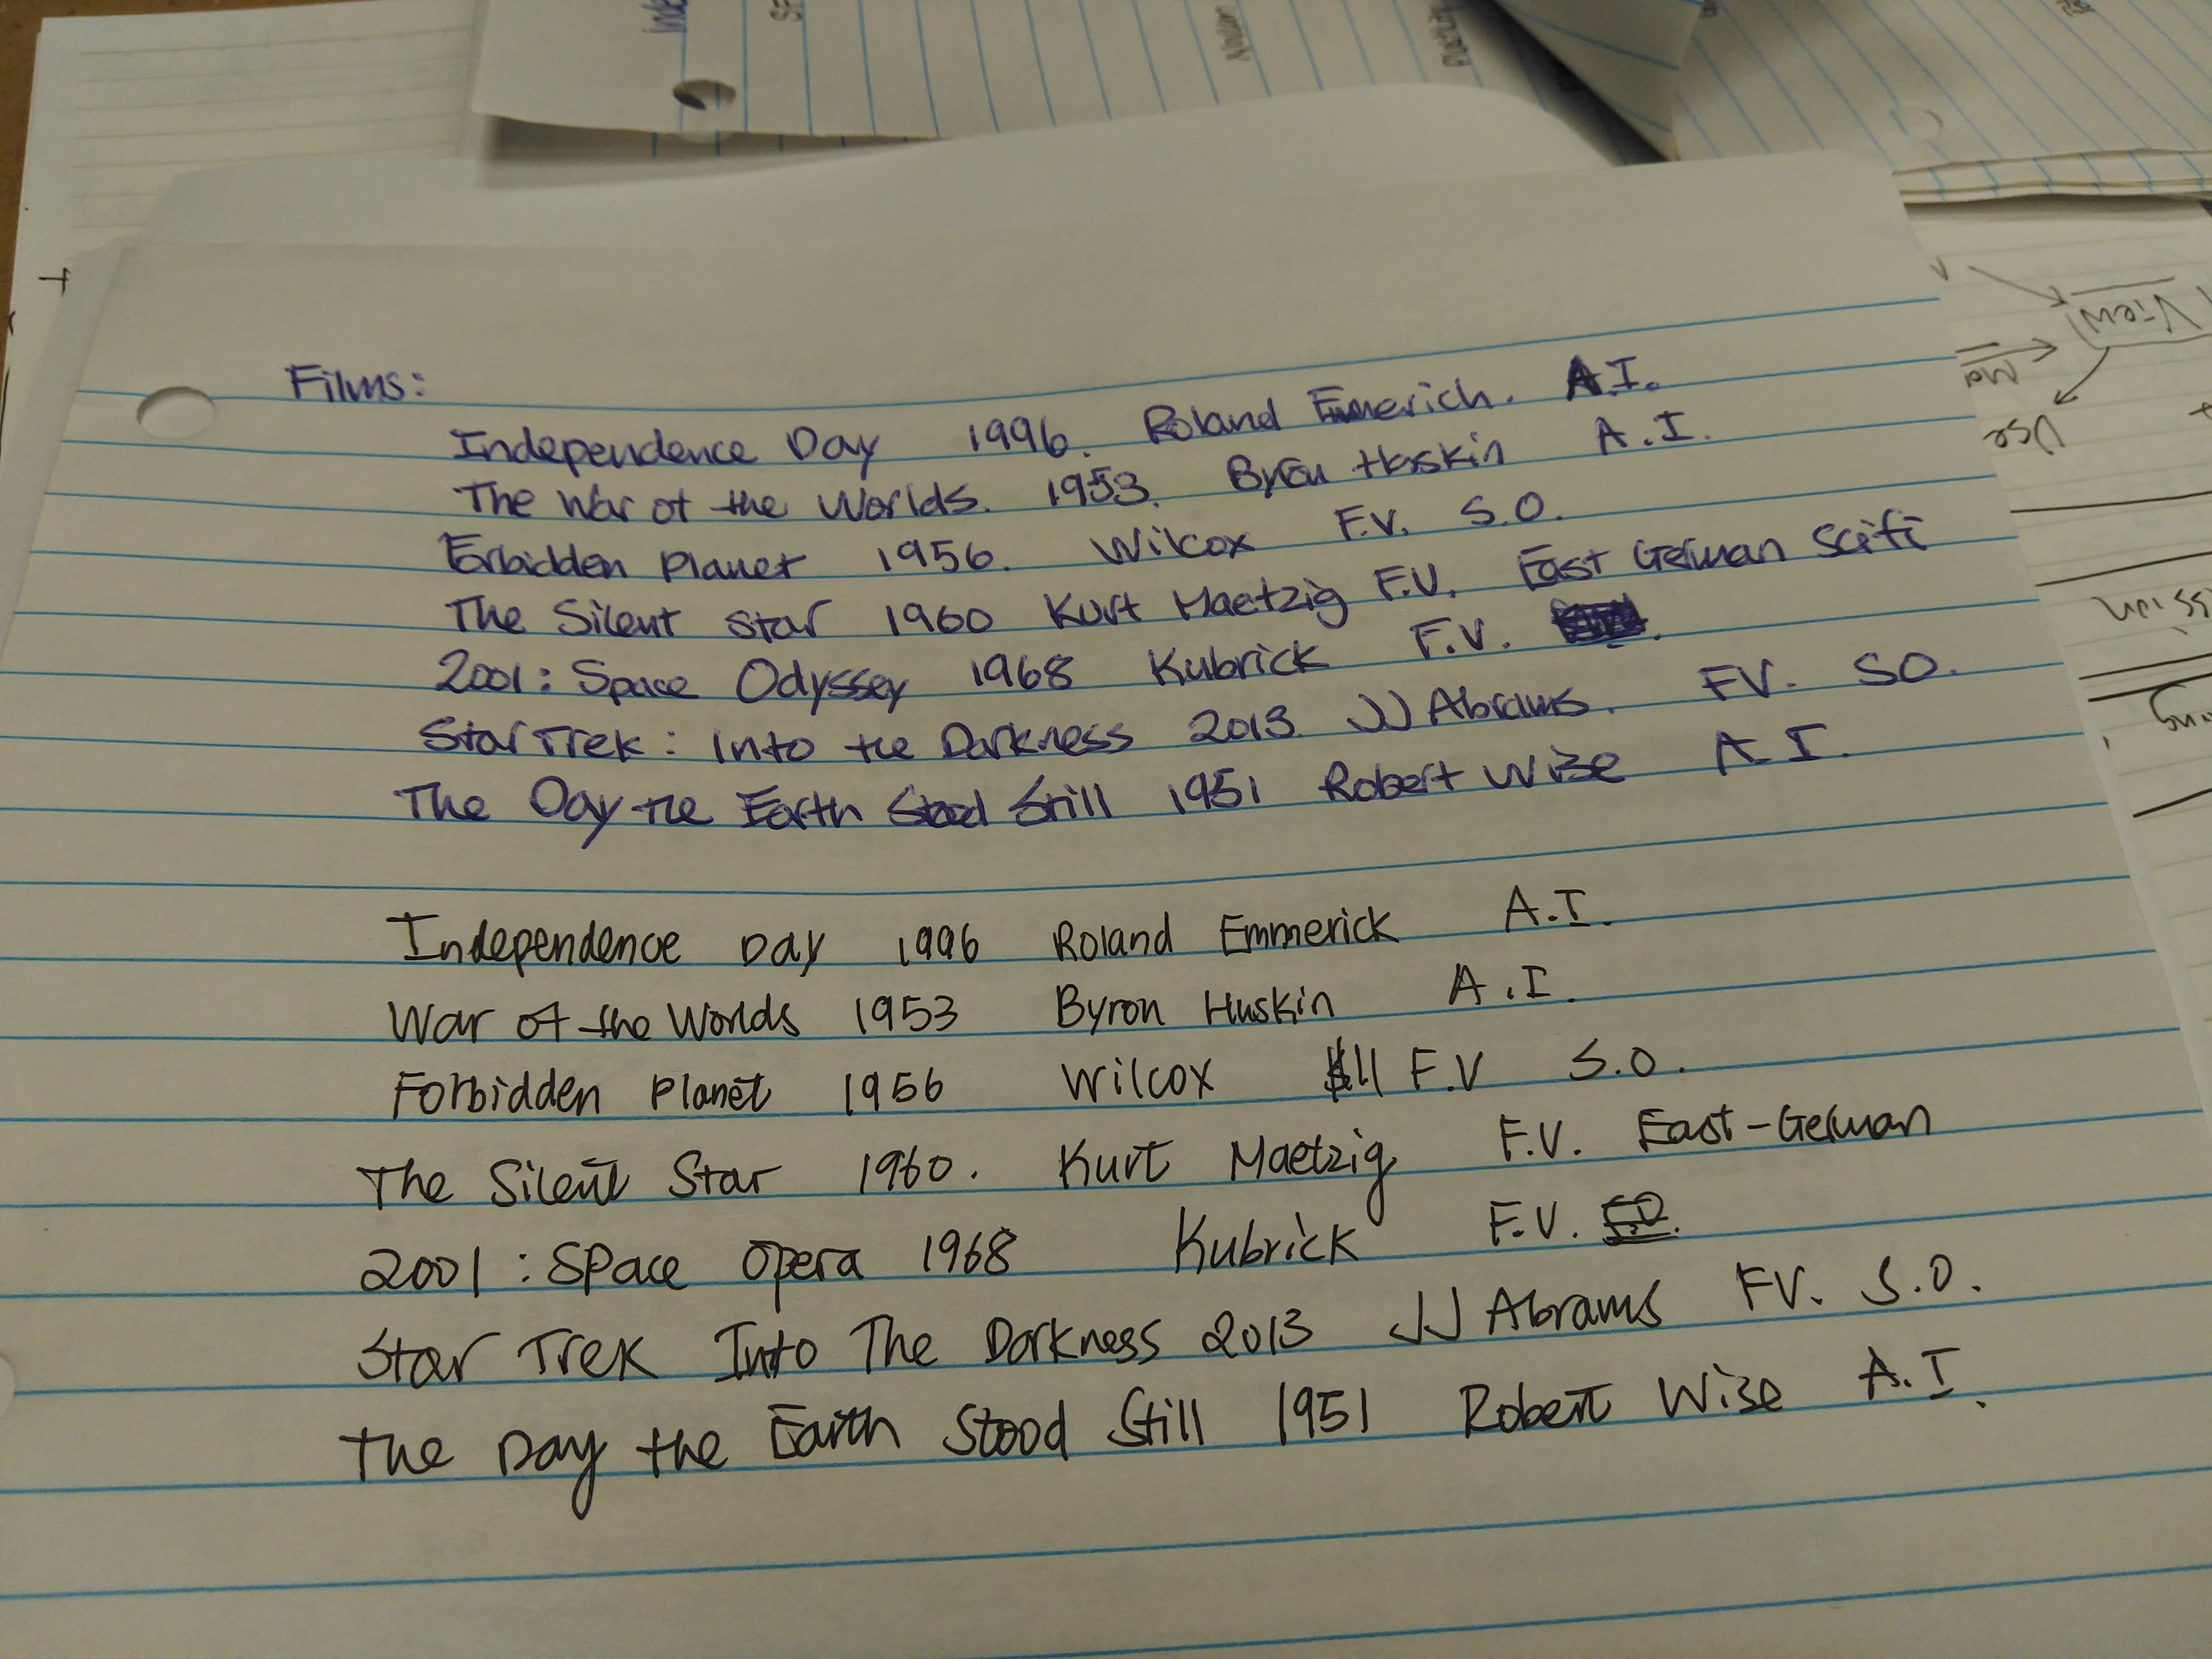 Films:
Independence Day 1996. Roland Emmerich. A.I.
The War of the Worlds. 1953. Byron Haskin A.I.
Forbidden Planet 1956. Wilcox F.V. S.O.
The Silent Star 1960 Kurt Maetzig F.V. East German Scifi
2001: Space Odyssey 1968 Kubrick F.V.
Star Trek: Into the Darkness 2013. JJ Abrams. FV. SO.
The Day the Earth Stood Still 1951 Robert Wise A I.
Independence Day 1996 Roland Emmerick A.I.
War of the Worlds 1953 Byron Huskin A.I.
Forbidden Planet 1956 Wilcox F.V S.O.
The Silent Star 1960. Kurt Maetzig F.V. East-German
2001: Space Opera 1968 Kubrick F.V.
Star Trek Into The Darkness 2013 JJ Abrams FV. S.O.
The Day the Earth Stood Still 1951 Robert Wise A.I.
View
User